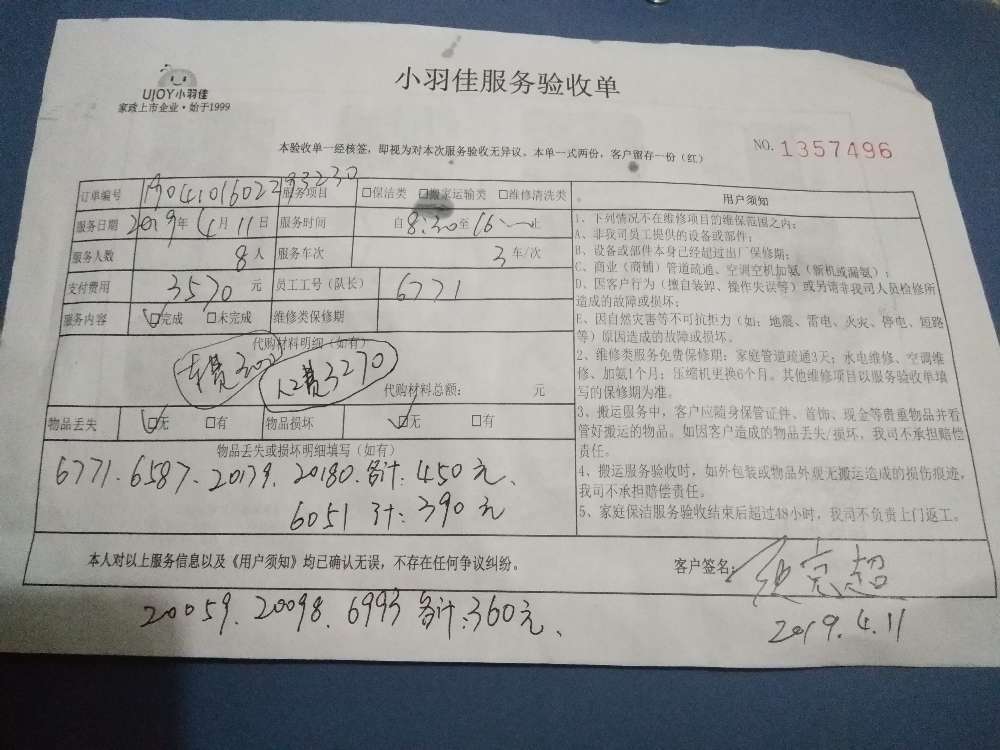 UJOY小羽佳
家政上市企业·始于1999
小羽佳服务验收单
本验收单一经核签，即视为对本次服务验收无异议。本单一式两份，客户留存一份（红）
NO. 1357496
订单编号 服务项目 □保洁类 □搬家运输类 □维修清洗类
服务日期 2019年4月11日 服务时间 自8:30至16 止
服务人数 8人 服务车次 3车/次
支付费用 3570元 员工工号（队长） 6771
服务内容 □完成 □未完成 维修类保修期
代购材料明细（如有）
车费300 人工费3270
代购材料总额： 元
物品丢失 □无 □有 物品损坏 □无 □有
物品丢失或损坏明细填写（如有）
6771.6587.20179.20180.各计:450元、
6051计:390元
用户须知
1、下列情况不在维修项目的维保范围之内：
A、非我司员工提供的设备或部件；
B、设备或部件本身已经超过出厂保修期；
C、商业（商铺）管道疏通、空调空机加氨（新机或漏氨）；
D、因客户行为（擅自装卸、操作失误等）或另请非我司人员检修所
造成的故障或损坏；
E、因自然灾害等不可抗拒力（如：地震、雷电、火灾、停电、短路
等）原因造成的故障或损坏。
2、维修类服务免费保修期：家庭管道疏通3天；水电维修、空调维
修、加氨1个月；压缩机更换6个月。其他维修项目以服务验收单填
写的保修期为准。
3、搬运服务中，客户应随身保管证件、首饰、现金等贵重物品并看
管好搬运的物品。如因客户造成的物品丢失/损坏，我司不承担赔偿
责任。
4、搬运服务验收时，如外包装或物品外观无搬运造成的损伤痕迹，
我司不承担赔偿责任。
5、家庭保洁服务验收结束后超过48小时，我司不负责上门返工。
本人对以上服务信息以及《用户须知》均已确认无误，不存在任何争议纠纷。
客户签名：
20059.20098.6993各计:360元、
2019.4.11